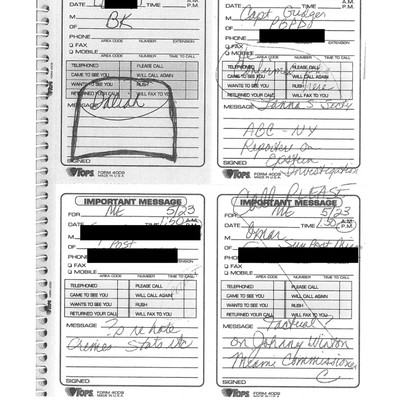 DATE A.M.
P.M.
M BK
OF
PHONE
AREA CODE NUMBER EXTENSION
FAX
MOBILE
AREA CODE NUMBER TIME TO CALL
TELEPHONED PLEASE CALL
CAME TO SEE YOU WILL CALL AGAIN
WANTS TO SEE YOU RUSH
RETURNED YOUR CALL WILL FAX TO YOU
MESSAGE
SIGNED
TOPS FORM 4009
MADE IN U.S.A.
DATE P.M.
M Capt. Gudger
OF PBPD
PHONE
AREA CODE NUMBER EXTENSION
FAX
MOBILE
AREA CODE NUMBER TIME TO CALL
TELEPHONED PLEASE CALL
CAME TO SEE YOU WILL CALL AGAIN
WANTS TO SEE YOU RUSH
RETURNED YOUR CALL WILL FAX TO YOU
MESSAGE
ABC - NY
Reporter on
Epstein
Investigation
SIGNED
TOPS FORM 4009
MADE IN U.S.A.
CALL PLEASE
IMPORTANT MESSAGE
FOR ME
DATE 5/23 TIME 1:50 A.M.
P.M.
M
OF Post
PHONE
EXTENSION
FAX
MOBILE
AREA CODE NUMBER TIME TO CALL
TELEPHONED PLEASE CALL
CAME TO SEE YOU WILL CALL AGAIN
WANTS TO SEE YOU RUSH
RETURNED YOUR CALL WILL FAX TO YOU
MESSAGE ?s re hate
Crimes Stats etc
SIGNED
TOPS FORM 4009
MADE IN U.S.A.
IMPORTANT MESSAGE
FOR ME 5/23
DATE TIME A.M.
P.M.
M Omar
OF Sun Post
PHONE
FAX
MOBILE
AREA CODE NUMBER TIME TO CALL
TELEPHONED PLEASE CALL
CAME TO SEE YOU WILL CALL AGAIN
WANTS TO SEE YOU RUSH
RETURNED YOUR CALL WILL FAX TO YOU
MESSAGE Factual ?
on Johnny Winton
Miami Commissioner
SIGNED
TOPS FORM 4009
MADE IN U.S.A.